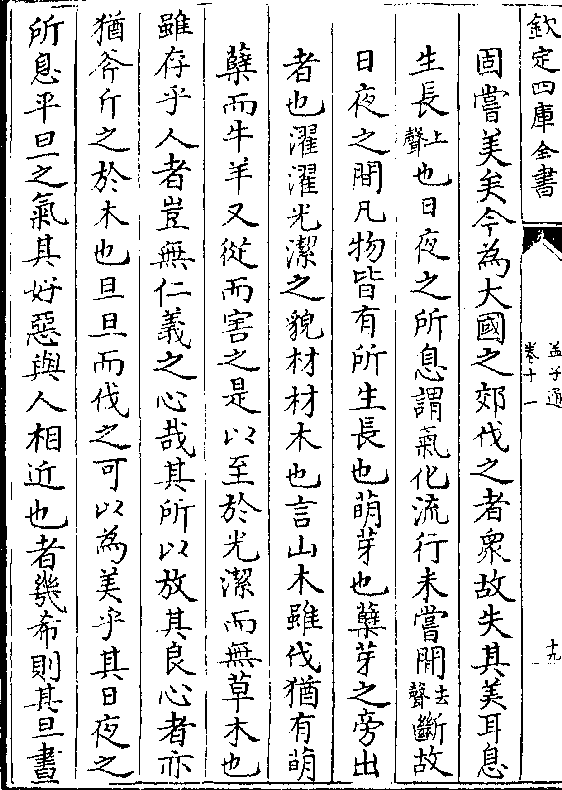 欽定四庫全書
孟子通
卷十一
十九
固嘗美矣今為大國之郊伐之者衆故失其美耳息
生長上聲也日夜之所息謂氣化流行未嘗間去聲斷故
日夜之間凡物皆有所生長也萌芽也蘖芽之旁出
者也濯濯光潔之貌材材木也言山木雖伐猶有萌
蘖而牛羊又從而害之是以至於光潔而無草木也
雖存乎人者豈無仁義之心哉其所以放其良心者亦
猶斧斤之於木也旦旦而伐之可以為美乎其日夜之
所息平旦之氣其好惡與人相近也者幾希則其旦晝